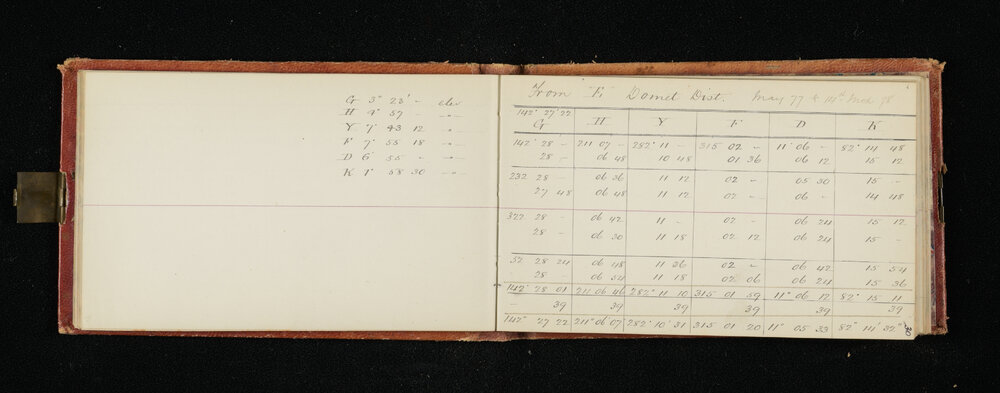 G 3° 23' - elev
H 4° 37 - -"-
Y 7° 43 12 -"-
F 7° 55 18 -"-
D 6° 55 - -"-
K 1° 58 30 -"-
From "E" Domet Dist. May 77 & 14th Mch 78
142° 27' 22
G H Y F D K
142° 28 - 211 07 - 282° 11 - 315 02 - 11° 06 - 82° 14 48
28 - 06 48 10 48 01 36 06 12 15 12
232 28 - 06 36 11 12 02 - 05 30 15 -
27 48 06 48 11 12 02 - 06 - 14 48
322 28 - 06 42 11 - 02 - 06 24 15 12
28 - 06 30 11 18 02 12 06 24 15 -
52 28 24 06 48 11 36 02 - 06 42 15 54
28 - 06 54 11 18 02 06 06 24 15 36
142° 28 01 211 06 46 282° 11 10 315 01 59 11° 06 12 82° 15 11
- 39 39 39 39 39 39
142° 27 22 211° 06' 07 282° 10' 31 315 01 20 11° 05 33 82° 14' 32"
30